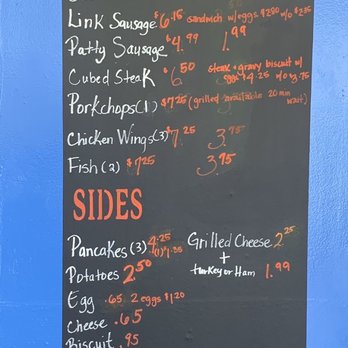 Link Sausage $6.15 sandwich w/eggs $2.80 w/o $2.35
Patty Sausage $4.99 1.99
Cubed Steak $6.50 steak + gravy biscuit w/
egg 4.25 w/o 3.75
Porkchops(1) $7.25 (grilled available 20 min
wait)
Chicken Wings(3) $7.25 3.75
Fish(2) $7.25 3.75
SIDES
Pancakes (3) 4.25
(1) 1.85
Potatoes 2.50
Egg .65 2 eggs $1.20
Cheese .65
Biscuit .95
Grilled Cheese 2.25
+
turkey or Ham 1.99